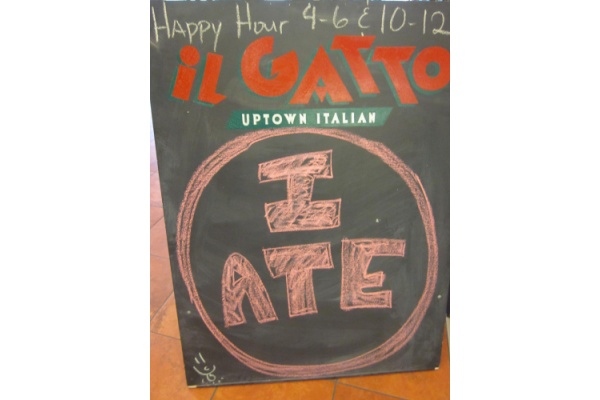 Happy Hour 4-6 & 10-12
iL GATTO
UPTOWN ITALIAN
I
ATE